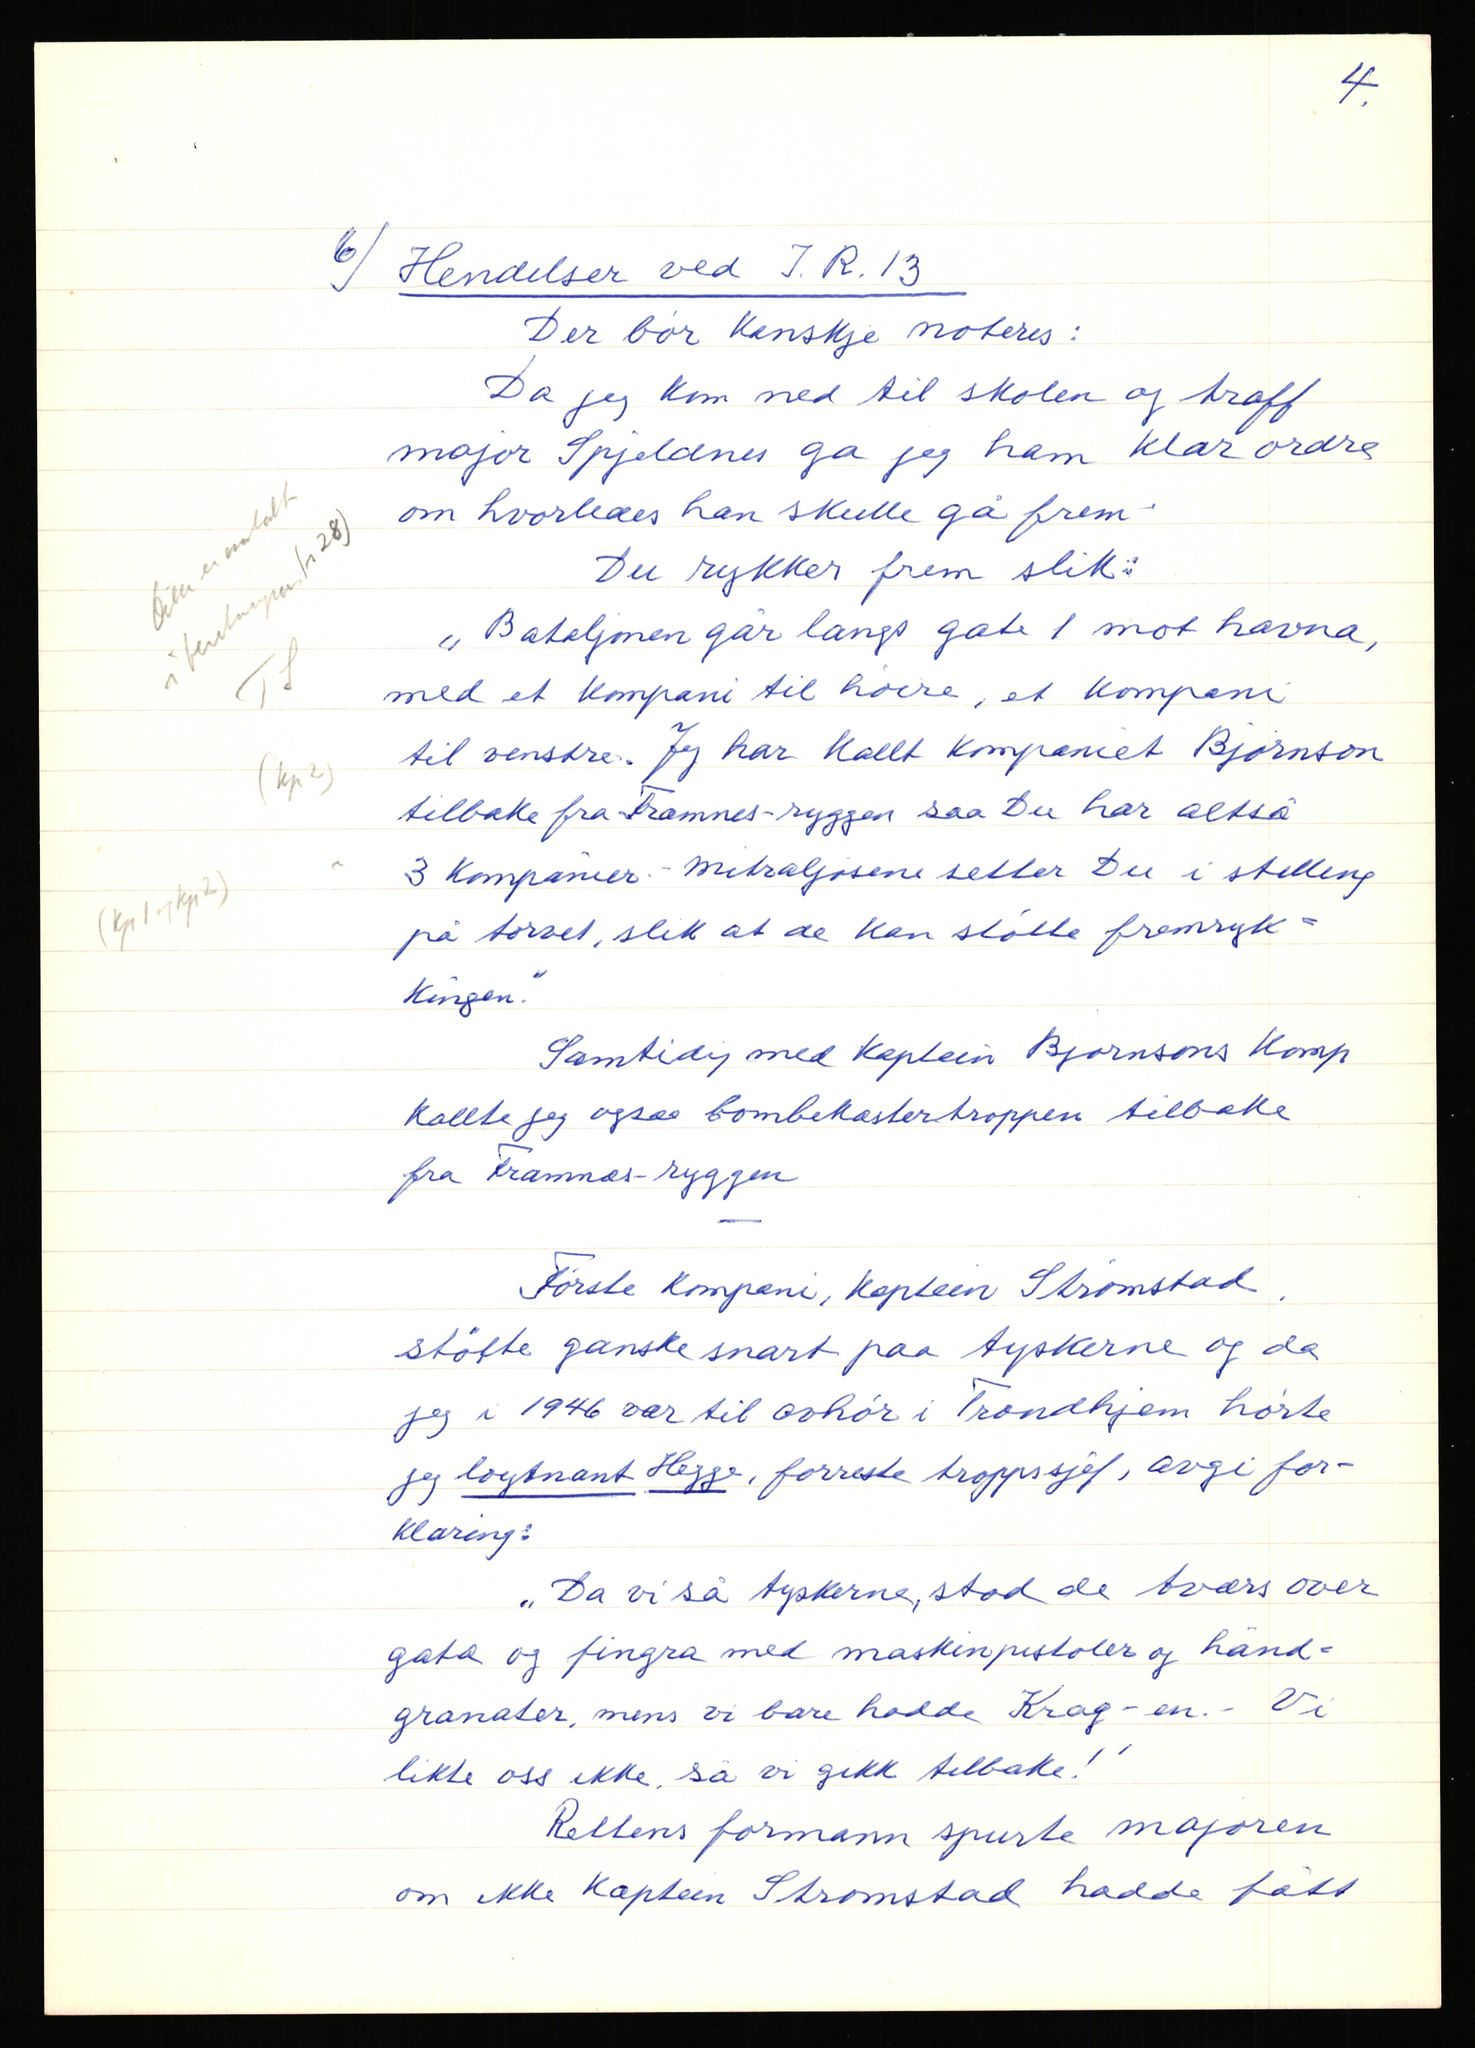 4.
6/ Hendelser ved I.R. 13
Der bör kanskje noteres:
Da jeg kom ned til skolen og traff
major Spjeldnes ga jeg ham klar ordre
om hvorledes han skulle gå frem.
Du rykker frem slik:
„Bataljonen går langs gate 1 mot havna,
med et kompani til höire, et kompani
til venstre. Jeg har kallt kompaniet Björnson
(kp 2)
tilbake fra Framnes-ryggen saa Du har altså
3 kompanier. - Mitraljösene setter Du i stilling
(kp 1 og kp 2)
på torvet, slik at de kan stötte fremryk=
kingen."
Samtidig med kaptein Bjørnsons komp
kallte jeg ogsaa bombekastertroppen tilbake
fra Framnæs-ryggen
Förste kompani, kaptein Strömstad,
stötte ganske snart paa tyskerne og da
jeg i 1946 var til avhör i Trondhjem hörte
jeg löytnant Hegge, forreste troppssjef, avgi for-
klaring:
„Da vi så tyskerne, stod de tværs over
gata og fingra med maskinpistoler og hånd=
granater, mens vi bare hadde Krag-en. - Vi
likte oss ikke, så vi gikk tilbake!"
Rettens formann spurte majoren
om ikke kaptein Strømstad hadde fått
Dette er omtalt
i beretningen (s 28)
TS